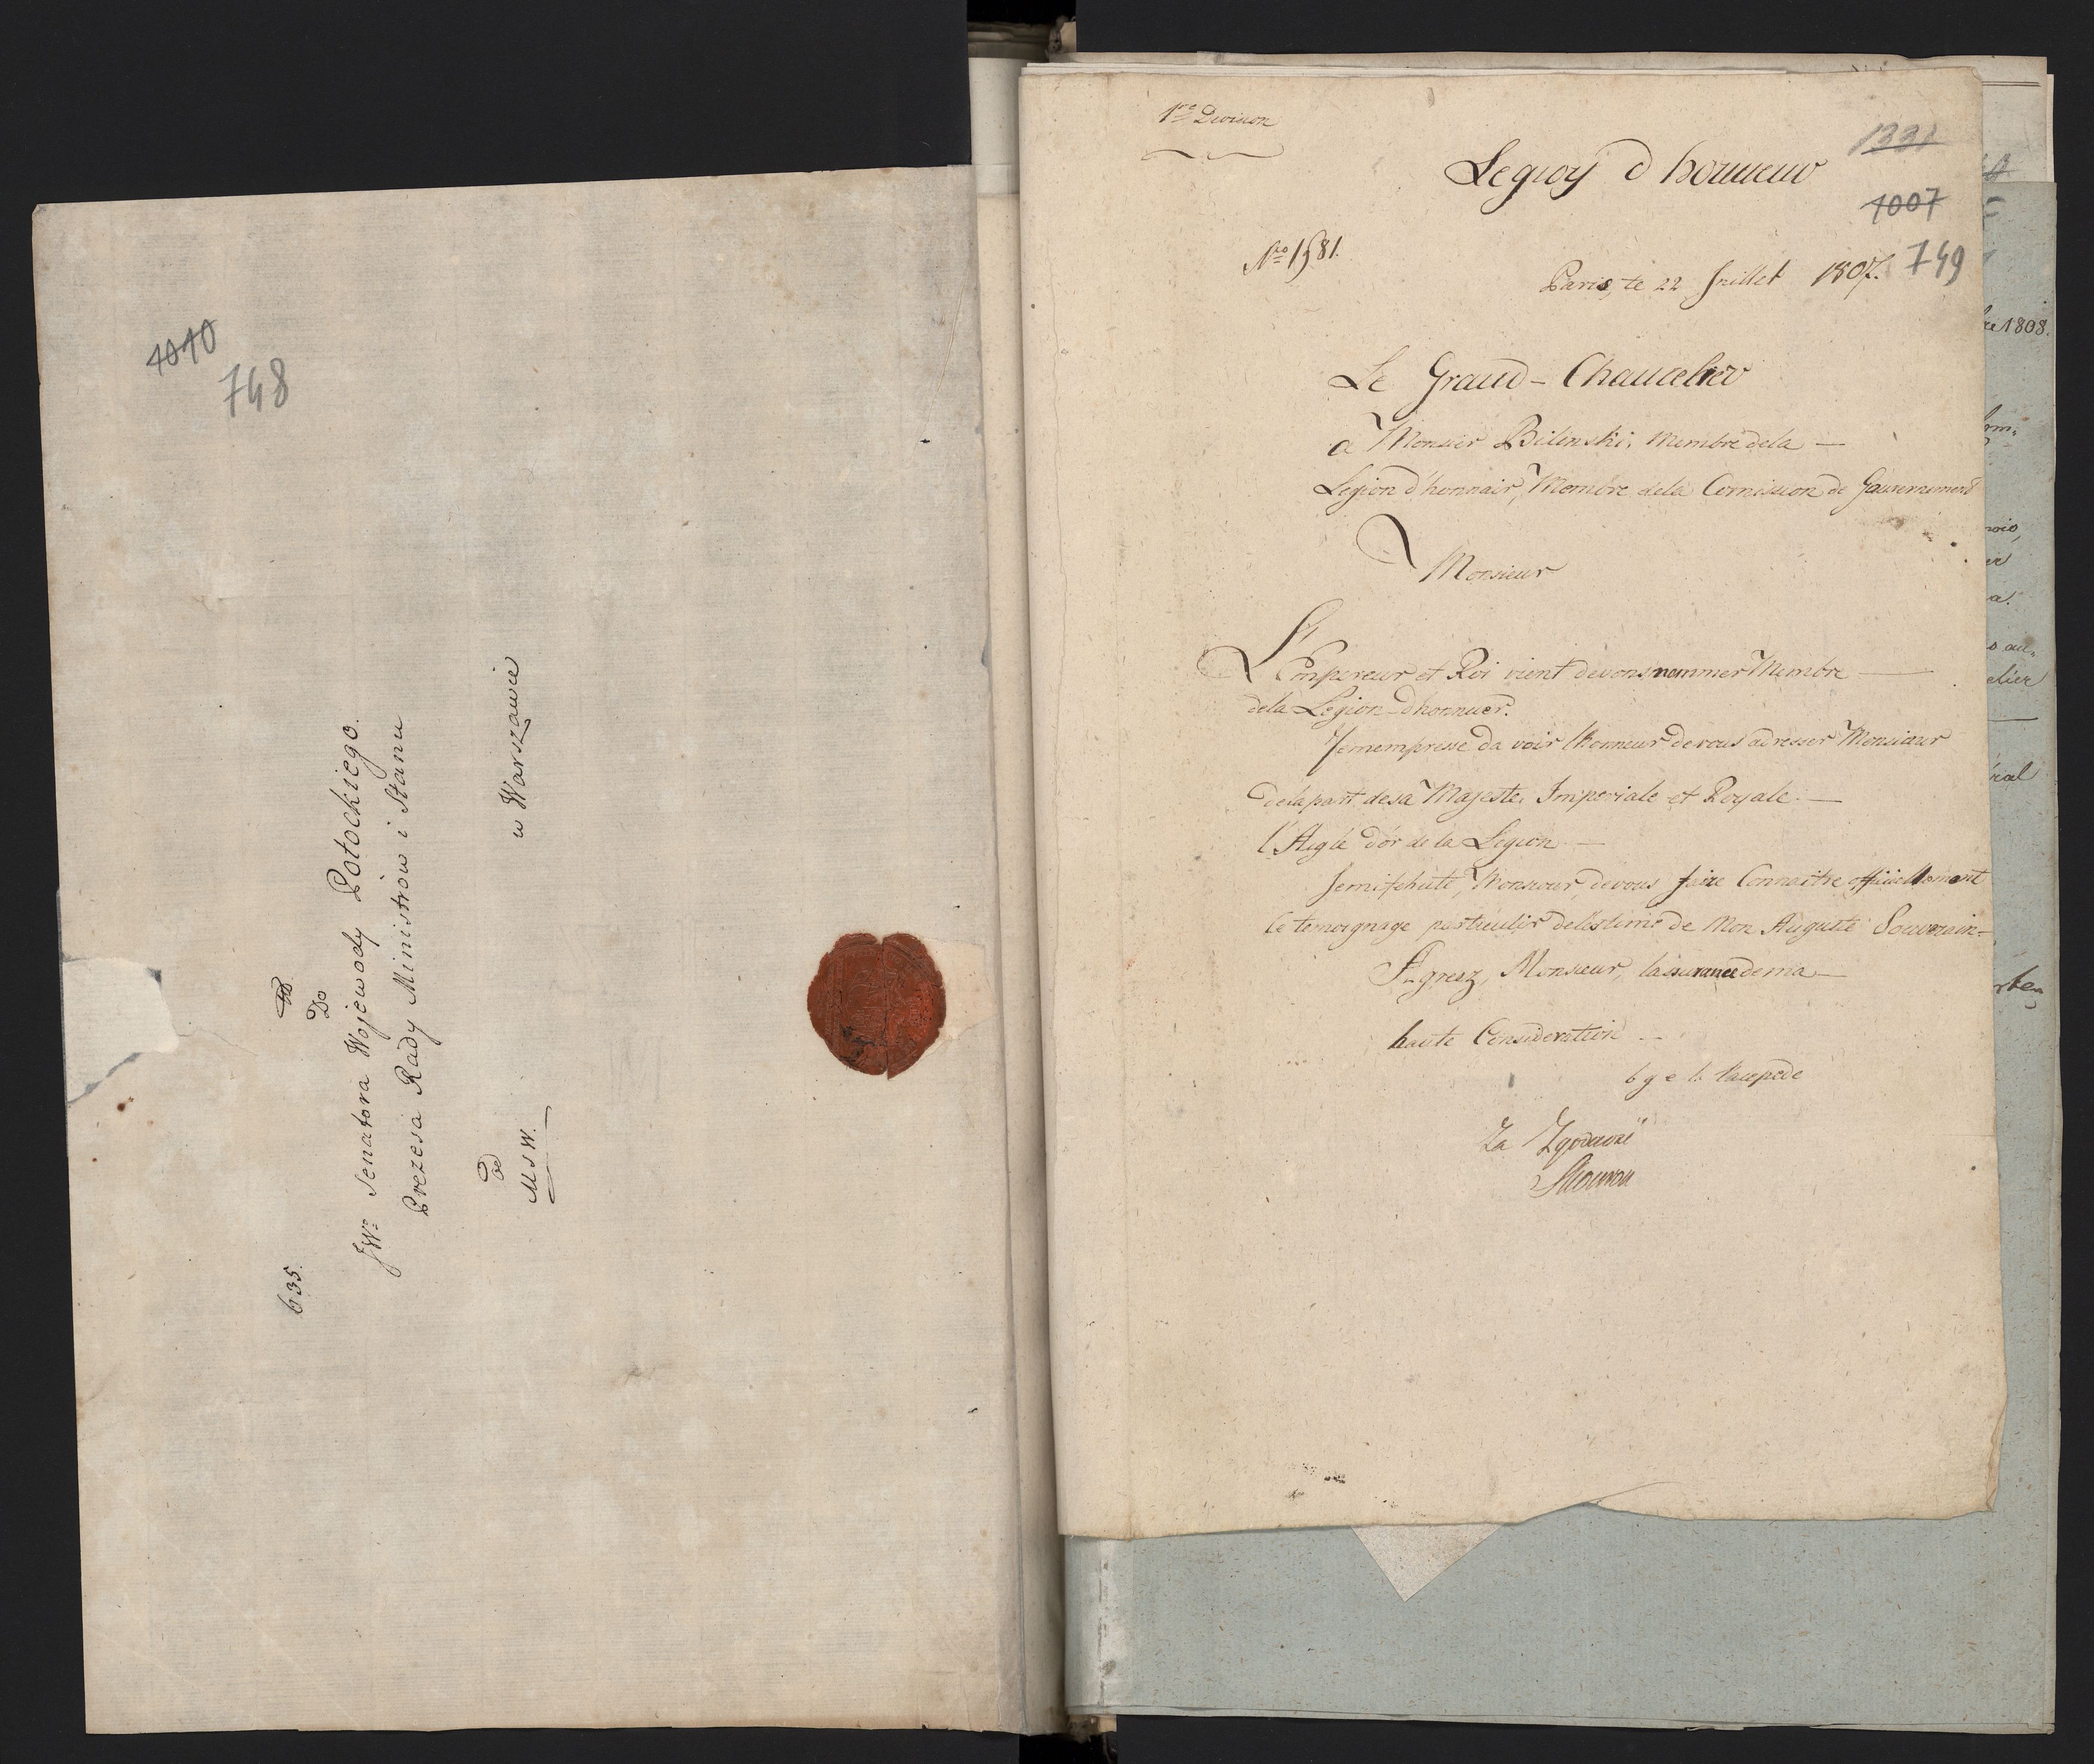 4010
748
635.
Do
JWo Senatora Wojewody Potockiego.
Prezesa Rady Ministrów i Stanu
w Warszawie
od
MSW.
1re Division
Legioy d honneur
1331
1007
749
No 1581.
Paris, le 22 Juillet 1807.
Le Grand-Chancelier
a Monsier Bilinski, Membre dela —
Legion d'honnair, Membre dela Comission de Gauvernement
Monsieur
L'Empereur et Roi vient devous nommer Membre —
dela Legion-dhonnuer.
Jemempresse da voir lhonneur devous adresser Monsieur
delapart desa Majeste, Imperiale et Royale. —
l'Aigle d'or de la Legion —
Jemifelicite, Monsieur, devous faire Connaitre officiellement
le temoignage particulir delestime de Mon Auguste Souverain=
Agreez, Monsieur, lassurance dema —
haute Consideration —
b g e l. lacepede
Za Zgodność